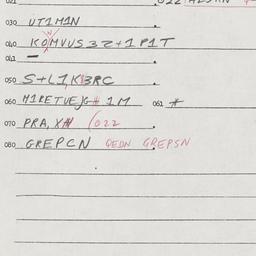 030 UT1M1N
040 KOMVUS 3 Z+1 P1T
041 —
050 S+L1,K13RC
060 M1RETUEJG# 1M 061 #
070 PRA, X# (022
080 GREPCN QEDN GREPSN